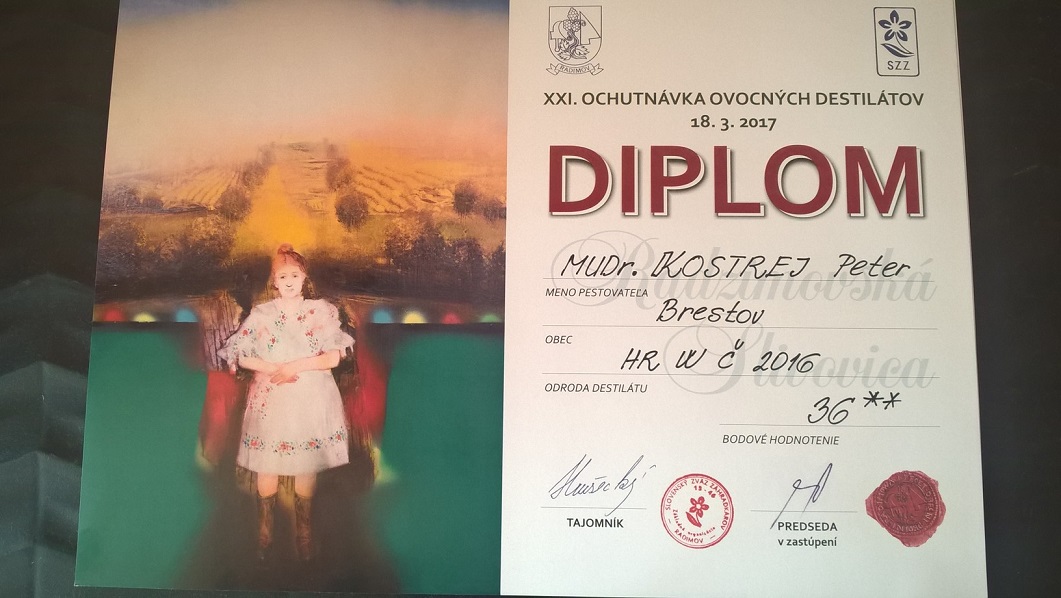 RADIMOV
SZZ
XXI. OCHUTNÁVKA OVOCNÝCH DESTILÁTOV
18. 3. 2017
DIPLOM
Radzimovská
Slivovica
MUDr. KOSTREJ Peter
MENO PESTOVATEĽA
Brestov
OBEC
HR W Č 2016
ODRODA DESTILÁTU
36 **
BODOVÉ HODNOTENIE
TAJOMNÍK
SLOVENSKÝ ZVÄZ ZÁHRADKÁROV
13-46
Základná organizácia
RADIMOV
PREDSEDA
v zastúpení